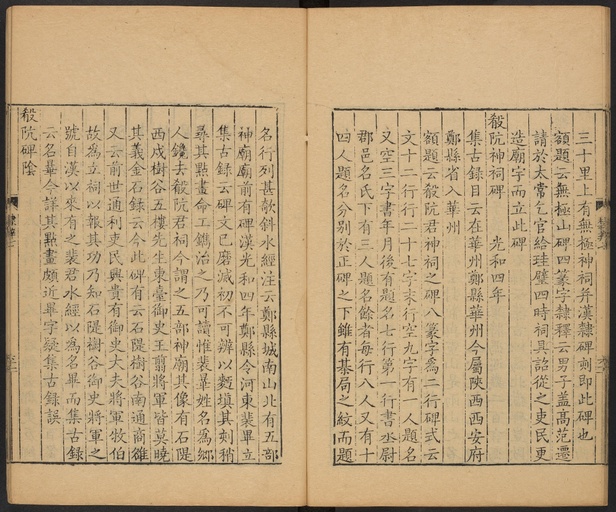 三十里上有無極神祠并漢隸碑刻即此碑也
額題云無極山碑四篆字隸釋云男子蓋高范遷
請於太常乞官給珪璧四時祠具詔從之吏民更
造廟宇而立此碑
殽阬神祠碑 光和四年
集古録目云在華州鄭縣華州今屬陝西西安府
鄭縣省入華州
額題云殽阬君神祠之碑八篆字為二行碑式云
文十二行行二十七字末行空九字有一人題名
又空三字書年月後有題名七行第一行書丞尉
郡邑名氏下有三人題名餘者每行八人又有十
四人題名分別於正碑之下雖有棊局之紋而題
名行列甚欹斜水經注云鄭縣城南山北有五部
神廟廟前有碑漢光和四年鄭縣令河東裴畢立
集古録云碑文已磨滅初不可辨以麪填其刻稍
尋其點畫命工鐫治之乃可讀惟裴 姓名爲鄉
人鑱去殽阬君祠今謂之五部神廟其像有石隄
西戍樹谷五樓先生東臺御史王翦將軍皆莫曉
其義金石録云今此碑有云石隄樹谷南通商雒
又云前世通利吏民興貴有御史大夫將軍牧伯
故為立祠以報其功乃知石隄樹谷御史將軍之
號自漢以來有之裴君水經以為名畢而集古録
云名 今詳其點畫頗近畢字疑集古録誤
殽阬碑陰